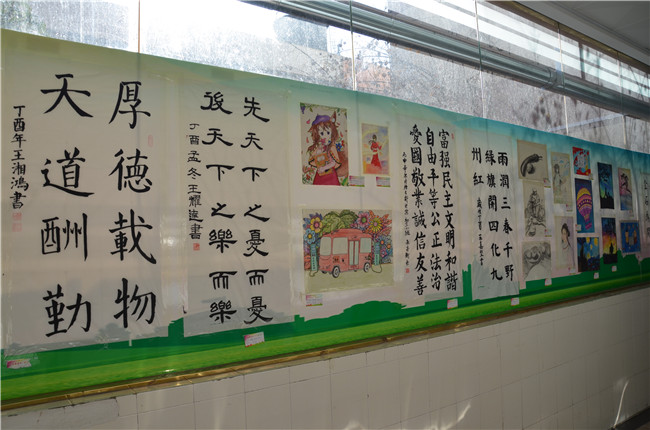 厚德載物
天道酬勤
丁酉年王湘鴻書
先天下之憂而憂
後天下之樂而樂
丁酉孟冬王耀書
富强民主文明和諧
自由平等公正法治
愛國敬業誠信友善
雨潤三春千野
緑旗開四化九
州紅